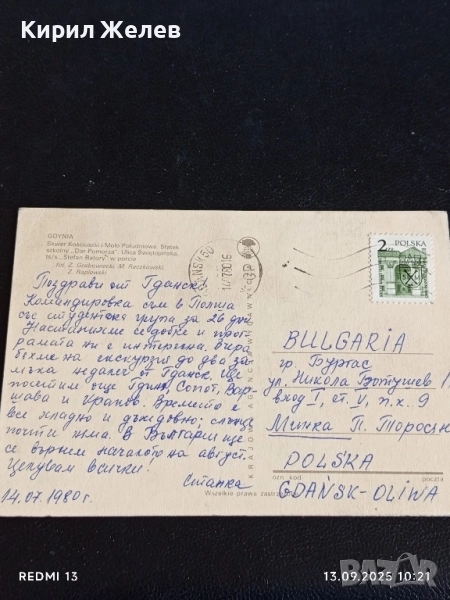 Кирил Желев
GDYNIA
Skwer Kościuszki i Molo Południowe. Statek
szkolny „Dar Pomorza". Ulica Świętojańska.
M/s „Stefan Batory" w porcie
fot. Z. Grabowiecki, M. Raczkowski,
Z. Raplewski
Поздрави от Гданск!
Командировка съм в Полша
със студентска група за 26 дни.
Настанихме се добре и прог-
рамата ни е интересна. Вчера
бяхме на екскурзия до два за-
мъка недалеч от Гданск. Ще
посетим още Гдиня, Сопот, Вар-
шава и Краков. Времето е
все хладно и дъждовно; слънце
почти няма. В България ще
се върнем началото на август.
Целувам всички!
Станка
14.07.1980г.
GDAŃSK 50
2 zł
POLSKA
BULGARIA
гр. Бургас
ул. Никола Ботушев
вход I, ет. V, п.к. 9
Минка П. Торосян
POLSKA
ozn. kod
poczta
GDAŃSK-OLIWA
KRAJOWA AGENCJA WYDAWNICZA
Wszelkie prawa zastrz
BAZAR
REDMI 13
13.09.2025 10:21